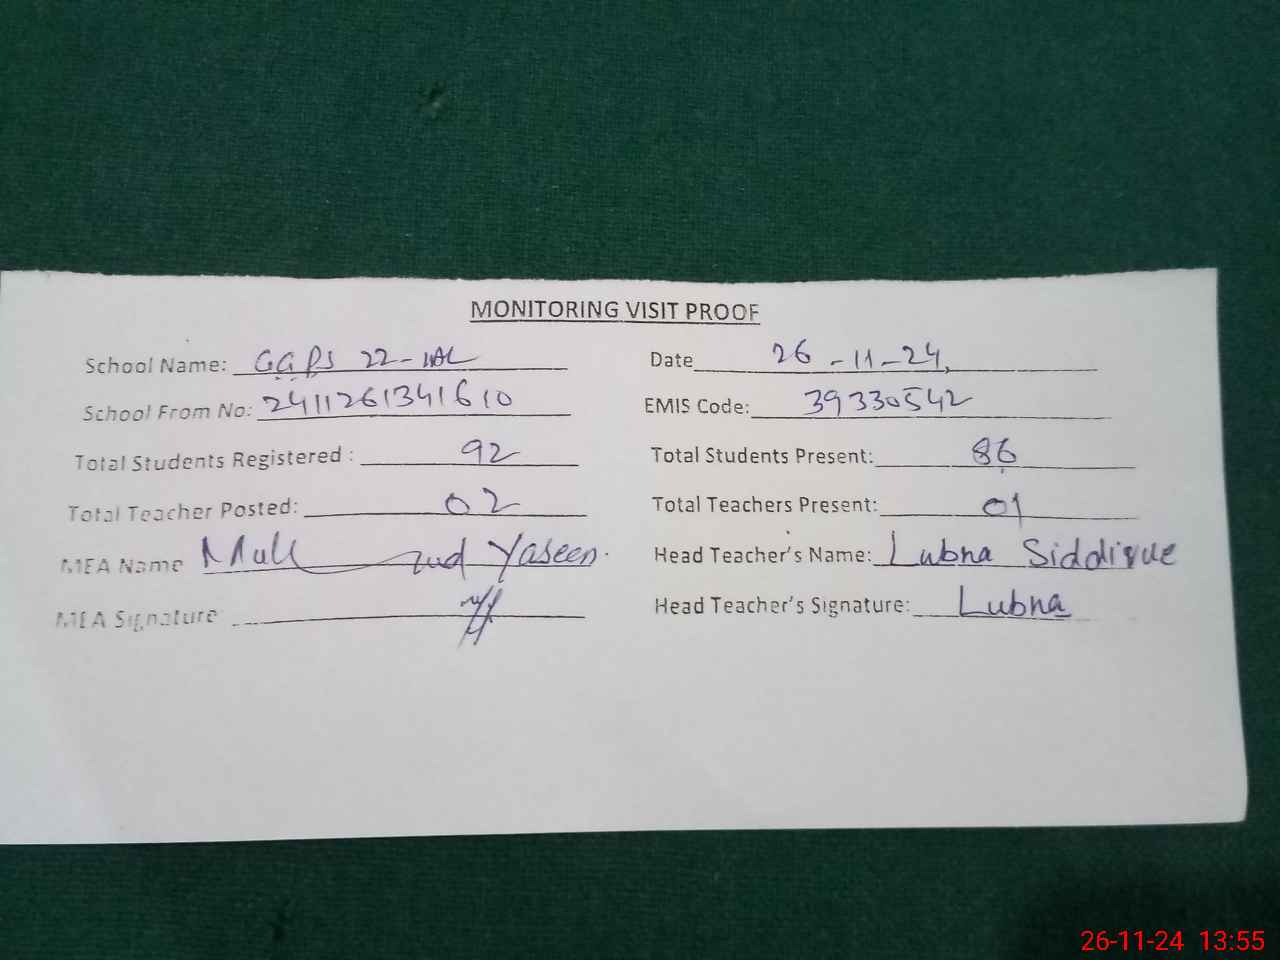 MONITORING VISIT PROOF
School Name: GGPS 22- Date 26-11-24
School From No: 2411261341610 EMIS Code: 39330542
Total Students Registered : 92 Total Students Present: 86
Total Teacher Posted: 02 Total Teachers Present: 01
MEA Name Yaseen. Head Teacher's Name: Lubna Siddique
MEA Signature Head Teacher's Signature: Lubna
26-11-24 13:55